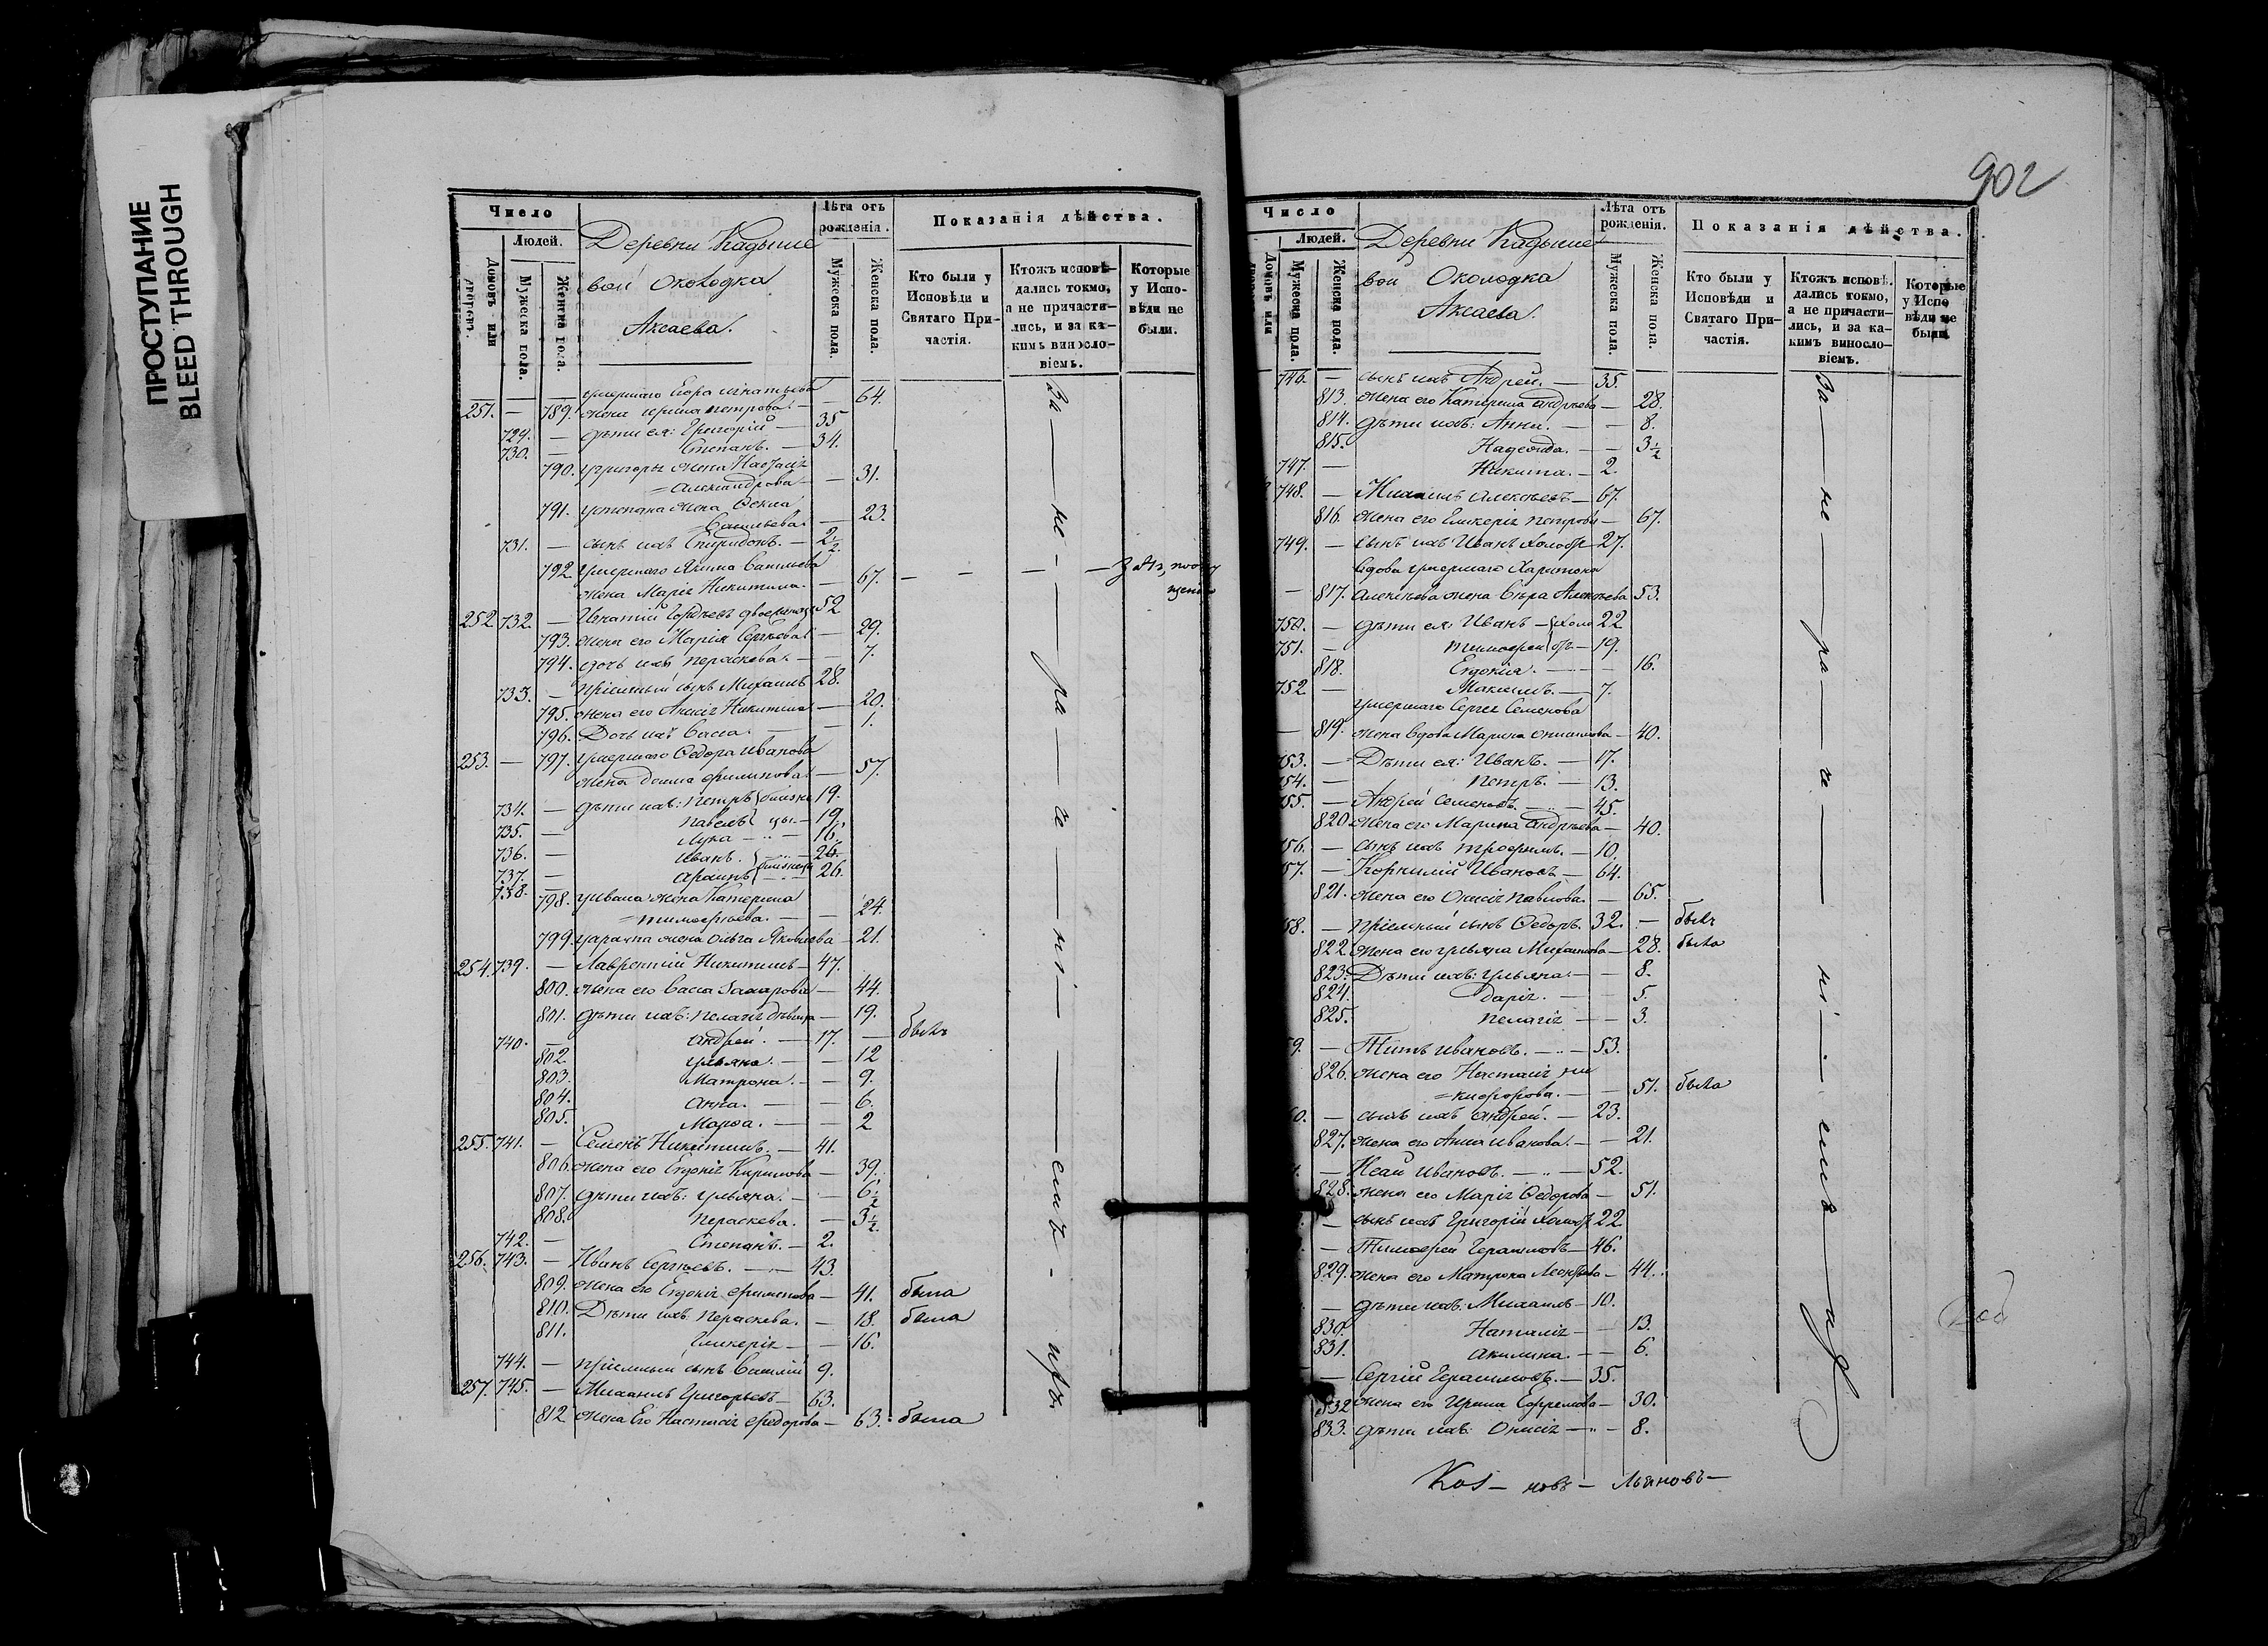 ПРОСТУПАНИЕ
BLEED THROUGH
Число
Людей.
Домовъ или
Мужеска пола.
Женска пола.
Деревни Кадыше
вой околодка
Аксаева.
Лѣта отъ
рожденія.
Мужеска пола.
Женска пола.
Показанія дѣйства.
Кто были у
Исповѣди и
Святаго При-
частія.
Ктожъ исповѣ-
дались токмо,
а не причасти-
лись, и за ка-
кимъ винословіемъ.
Которые
у Испо-
вѣди не
были.
умершаго Егора Игнатьева
251. — 789. жена Ирина Петрова — 64.
729. — дѣти ея: Григорій — 35
730. — Степанъ. — 34.
790. у Григорья жена Настасія
= Александрова — 31.
791. у Степана жена Ѳекла
Васильева. — 23.
731. — сынъ ихъ Спиридонъ. — 2½.
792. умершаго Якима Савельева
жена Марія Никитина — 67.
252. 732. — Игнатій Гордѣевъ 52
793. жена его Марія Сергѣева — 29.
794. дочь ихъ Параскева. — 7.
733. — пріемный сынъ Михаилъ 28.
795. жена его Анисія Никитина — 20.
796. Дочь ихъ Васса. — 1.
253. — 797. умершаго Ѳедора Иванова
жена Домна Филипова — 57.
734. — дѣти ихъ: Петръ близне 19.
735. — Павелъ цы. — 19.
736. — Лука — 16.
737. — Иванъ. близнецы 26.
738. — 26.
798. у Ивана жена Катерина
= Тимофѣева. — 24.
799. жена Ольга Яковлева — 21.
254. 739. — Лаврентій Никитинъ — 47.
800. жена его Васса Захарова — 44.
801. дѣти ихъ: Пелагія дѣвица — 19.
740. — Андрей. — 17. — былъ
802. Ульяна. — 12
803. Матрона. — 9.
804. Анна. — 6.
805. Марѳа. — 2
255. 741. — Семенъ Никитинъ. — 41.
806. жена его Евдокія Кирилова — 39.
807. дѣти ихъ: Ульяна. — 6½
808. Параскева. — 3½.
742. — Степанъ. — 2.
256. 743. — Иванъ Сергѣевъ. — 43.
809. жена его Евдокія Филипова — 41. была
810. Дѣти ихъ: Параскева. — 18. была
811. Гликерія — 16.
744. — пріемный сынъ Василій 9.
257. 745. — Михаилъ Григорьевъ — 63.
812. жена Его Настасія Ѳедорова — 63. была
За — не — ра — че — ні — емъ
902
Число
Людей.
Домовъ или
Мужеска пола.
Женска пола.
Деревни Кадыше
вой Околодка
Аксаева.
Лѣта отъ
рожденія.
Мужеска пола.
Женска пола.
Показанія дѣйства.
Кто были у
Исповѣди и
Святаго При-
частія.
Ктожъ исповѣ-
дались токмо,
а не причасти-
лись, и за ка-
кимъ винословіемъ.
Которые
у Испо
вѣди не
были.
746. — сынъ ихъ Андрей. — 35.
813. жена его Катерина Андрѣева — 28.
814. дѣти ихъ: Анна. — 8.
815. Надежда. — 3½
747. — Никита. — 2.
748. — Михаилъ Алексѣевъ — 67.
816. жена его Гликерія Петрова — 67.
749. — сынъ ихъ Иванъ Холост 27.
вдова умершаго Харитона
— 817. Алексѣева жена Вѣра Алексѣева 53.
750. — дѣти ея: Иванъ — 22
751. — Тимофей — 19.
818. Евдокія. — 16.
752 — Максимъ. — 7.
умершаго Сергея Семенова
— 819. жена вдова Марина — 40.
753. — Дѣти ея: Иванъ. — 17.
754. — Петръ. — 13.
755. — Андрей Семеновъ. — 45.
820. жена его Марина Андрѣева — 40.
756. — сынъ ихъ Трофимъ. — 10.
57. — Корнилій Ивановъ — 64.
821. жена его Анисія Павлова. — 65.
58. — пріемный сынъ Ѳедоръ. 32. — былъ
822. жена его Ульяна Михайлова — 28. была
823. Дѣти ихъ: Ульяна. — 8.
824. Дарія. — 5.
825. Пелагія — 3.
9. — Титъ Ивановъ. — 53.
826. жена его Настасія Ни
= кифорова. — 51. была
60. — сынъ ихъ Андрей. — 23.
827. жена его Анна Иванова. — 21.
— Исай Ивановъ. — 52.
828. жена его Марія Ѳедорова — 51.
— сынъ ихъ Григорій Холост 22
— Тимофей Герасимовъ — 46.
829. жена его Матрона Леонтьева — 44.
— дѣти ихъ: Михаилъ — 10.
830. Наталія — 13.
831. Акилина. — 6.
— Сергій Герасимовъ. — 35.
832. жена его Ирина Ефремова — 30.
833. дѣти ихъ: Анисія — 8.
За — не — ра — че — ні — емъ